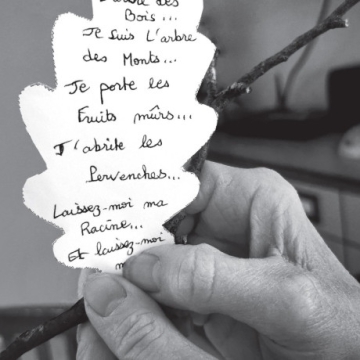 des
Bois...
Je suis L'arbre
des Monts...
Je porte les
Fruits mûrs...
J'abrite les
Pervenches...
Laissez-moi ma
Racine...
Et laissez-moi
m